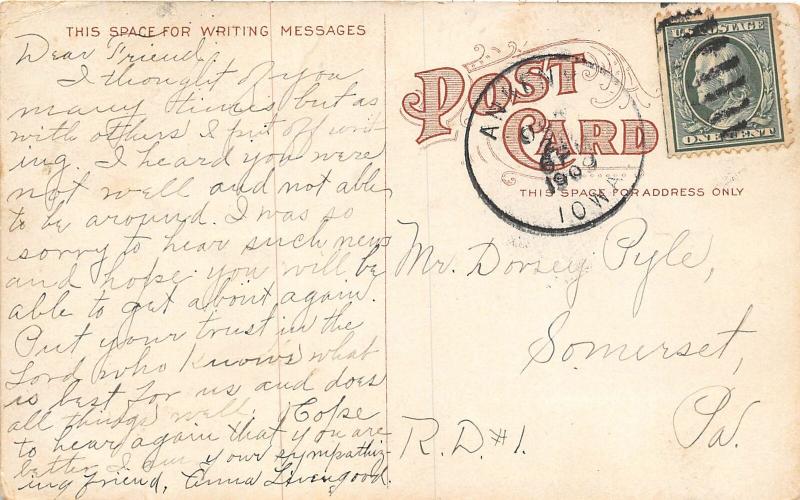 THIS SPACE FOR WRITING MESSAGES
Dear Friend,
I thought of you
many times but as
with others I put off writ-
ing. I heard you were
not well and not able
to be around. I was so
sorry to hear such news
and hope you will be
able to get about again.
Put your trust in the
Lord who knows what
is best for us and does
all things well. Hope
to hear again that you are
better I am your sympathiz-
ing friend, Anna Livengood.
POST
CARD
THIS SPACE FOR ADDRESS ONLY
U.S. POSTAGE
ONE CENT
1909
IOWA
Mr. Dorsey Pyle,
Somerset,
R.D. #1. Pa.